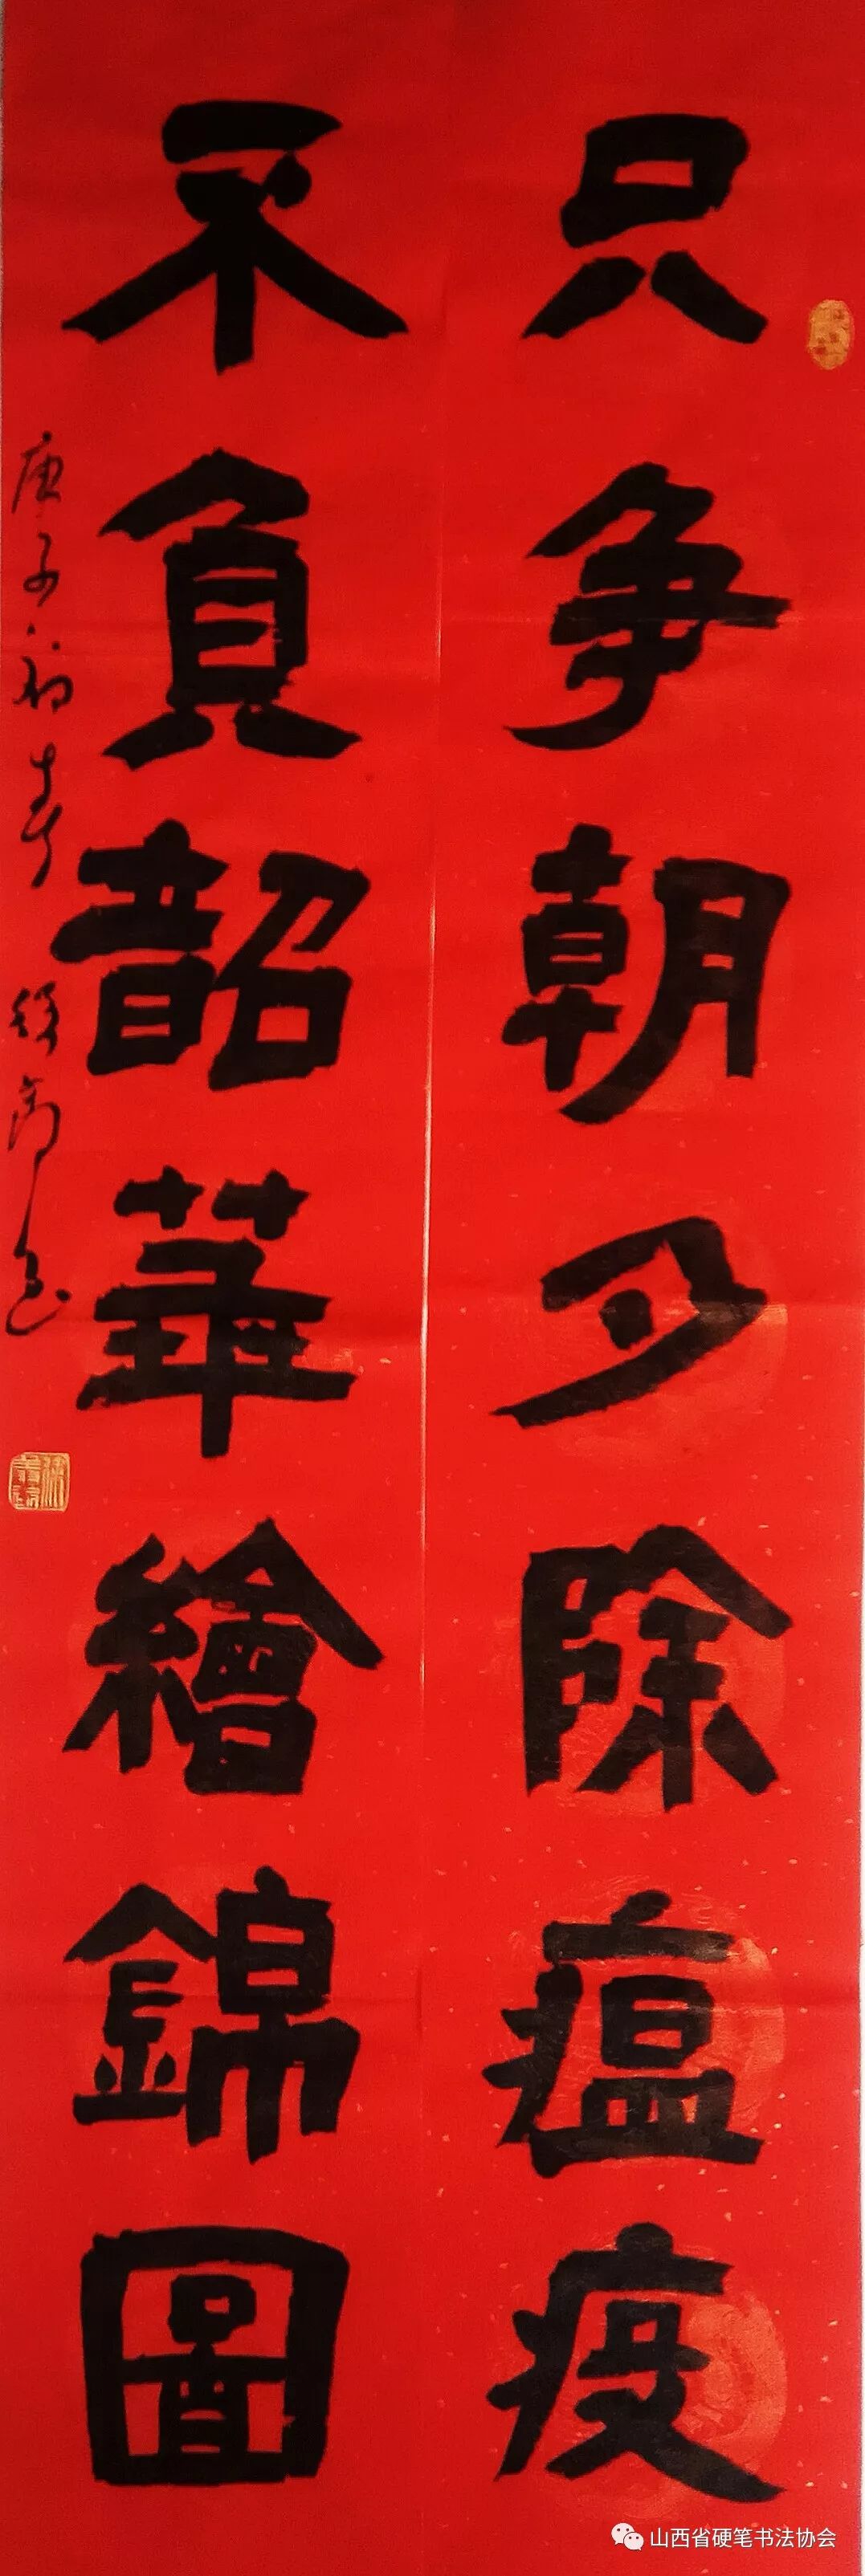 只争朝夕除瘟疫
不負韶華繪錦圖
庚子初春
山西省硬笔书法协会